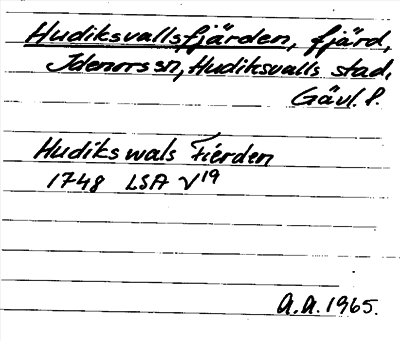 Hudiksvallsfjärden, fjärd,
Idenors sn, Hudiksvalls stad,
Gävl. l.
Hudiks wals Fierden
1748 LSA V19
A.A. 1965.